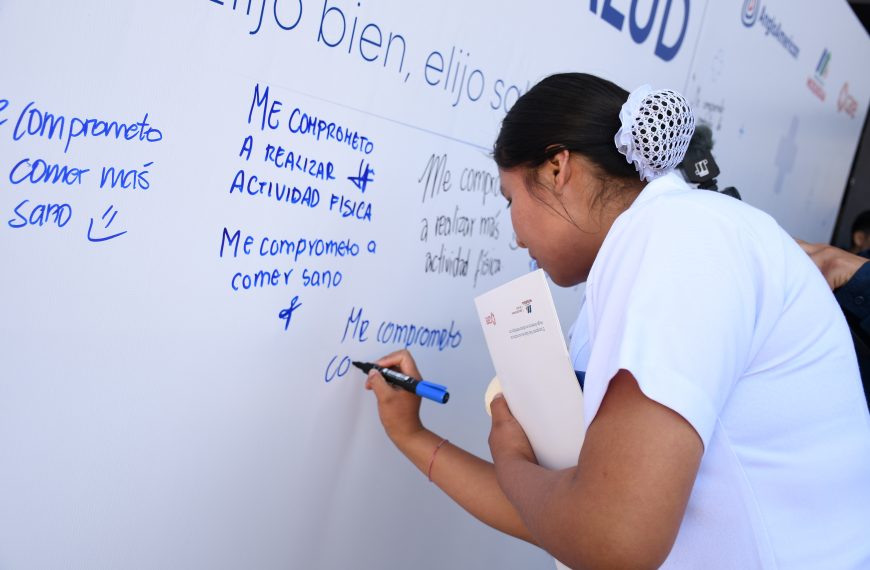 SALUD
elijo bien, elijo
AngloAmerican
Comprometo
comer más
sano
ME COMPROMETO
A REALIZAR
ACTIVIDAD FÍSICA
Me comprometo a
comer sano
Me
a realizar más
actividad física
Me comprometo
co